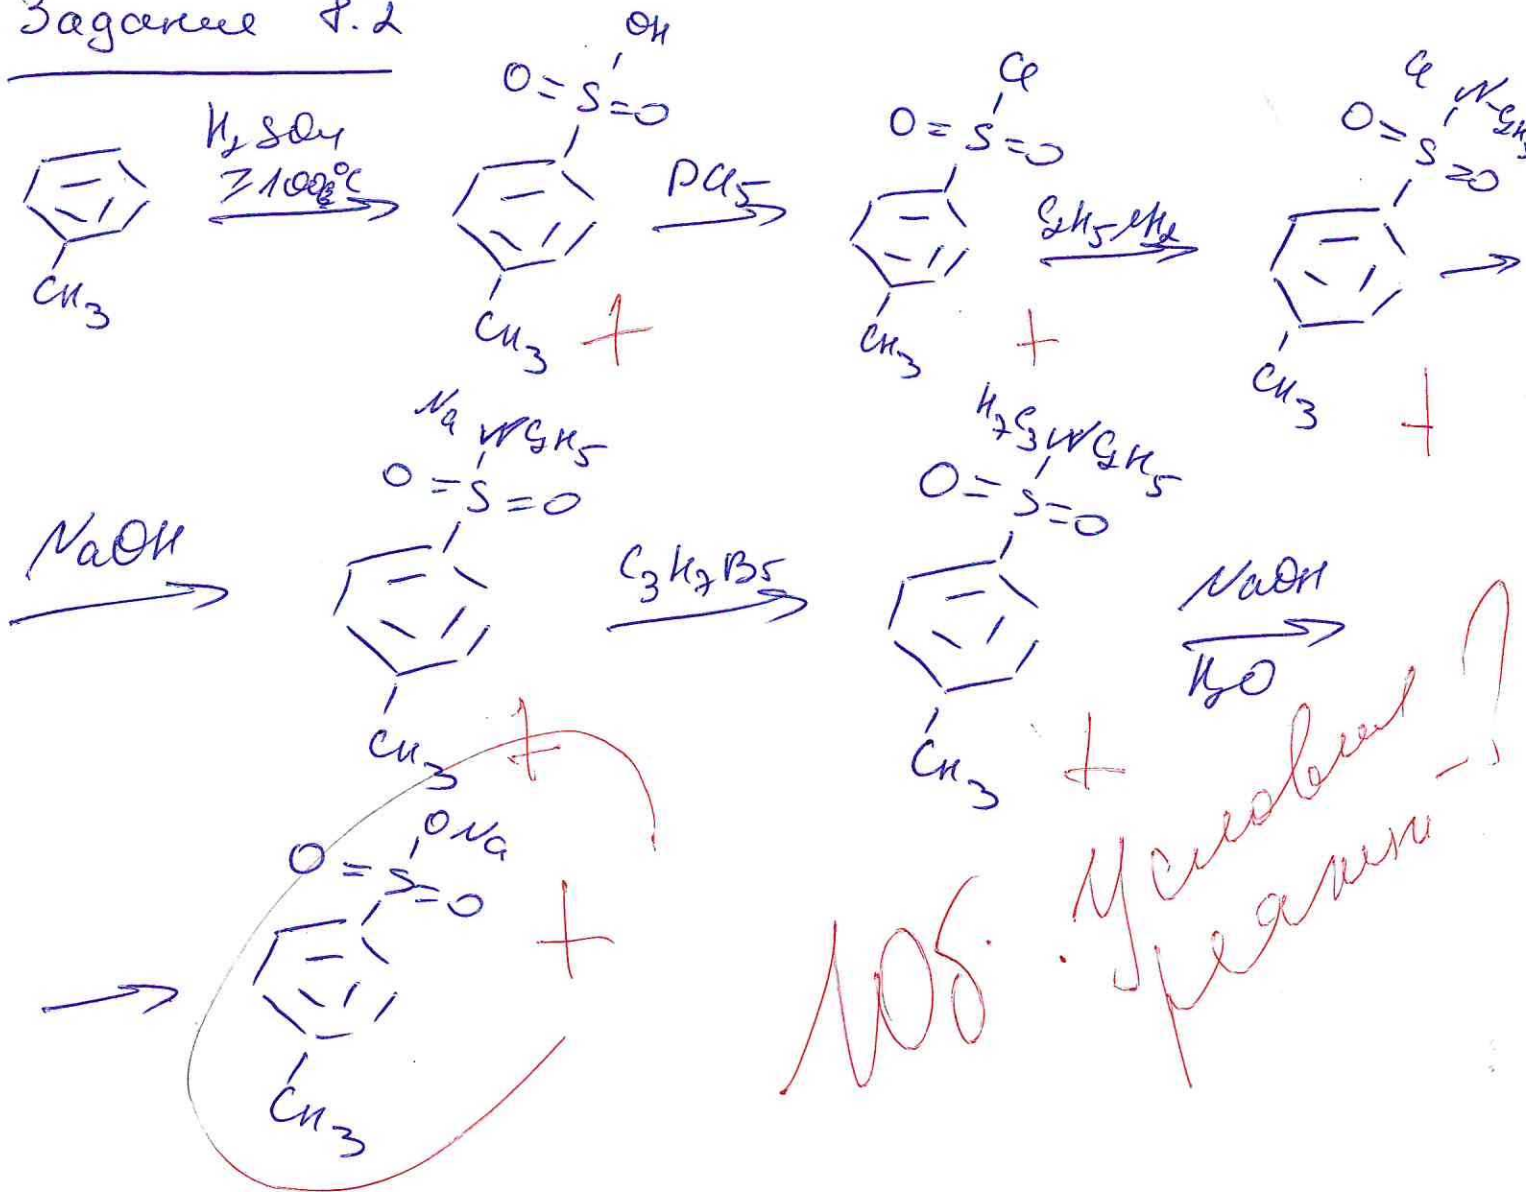 Задание 8.2
H2SO4
≥100°C
OH
O=S=O
CH3
CH3 +
PCl5
Cl
O=S=O
CH3
+
C2H5NH2
Cl N-C2H5
O=S=O
CH3
+
NaOH
Na NC2H5
O=S=O
CH3
+
C3H7Br
H7C3NC2H5
O=S=O
CH3
+
NaOH
H2O
ONa
O=S=O
CH3
+
10б. Условия
реакции - ?